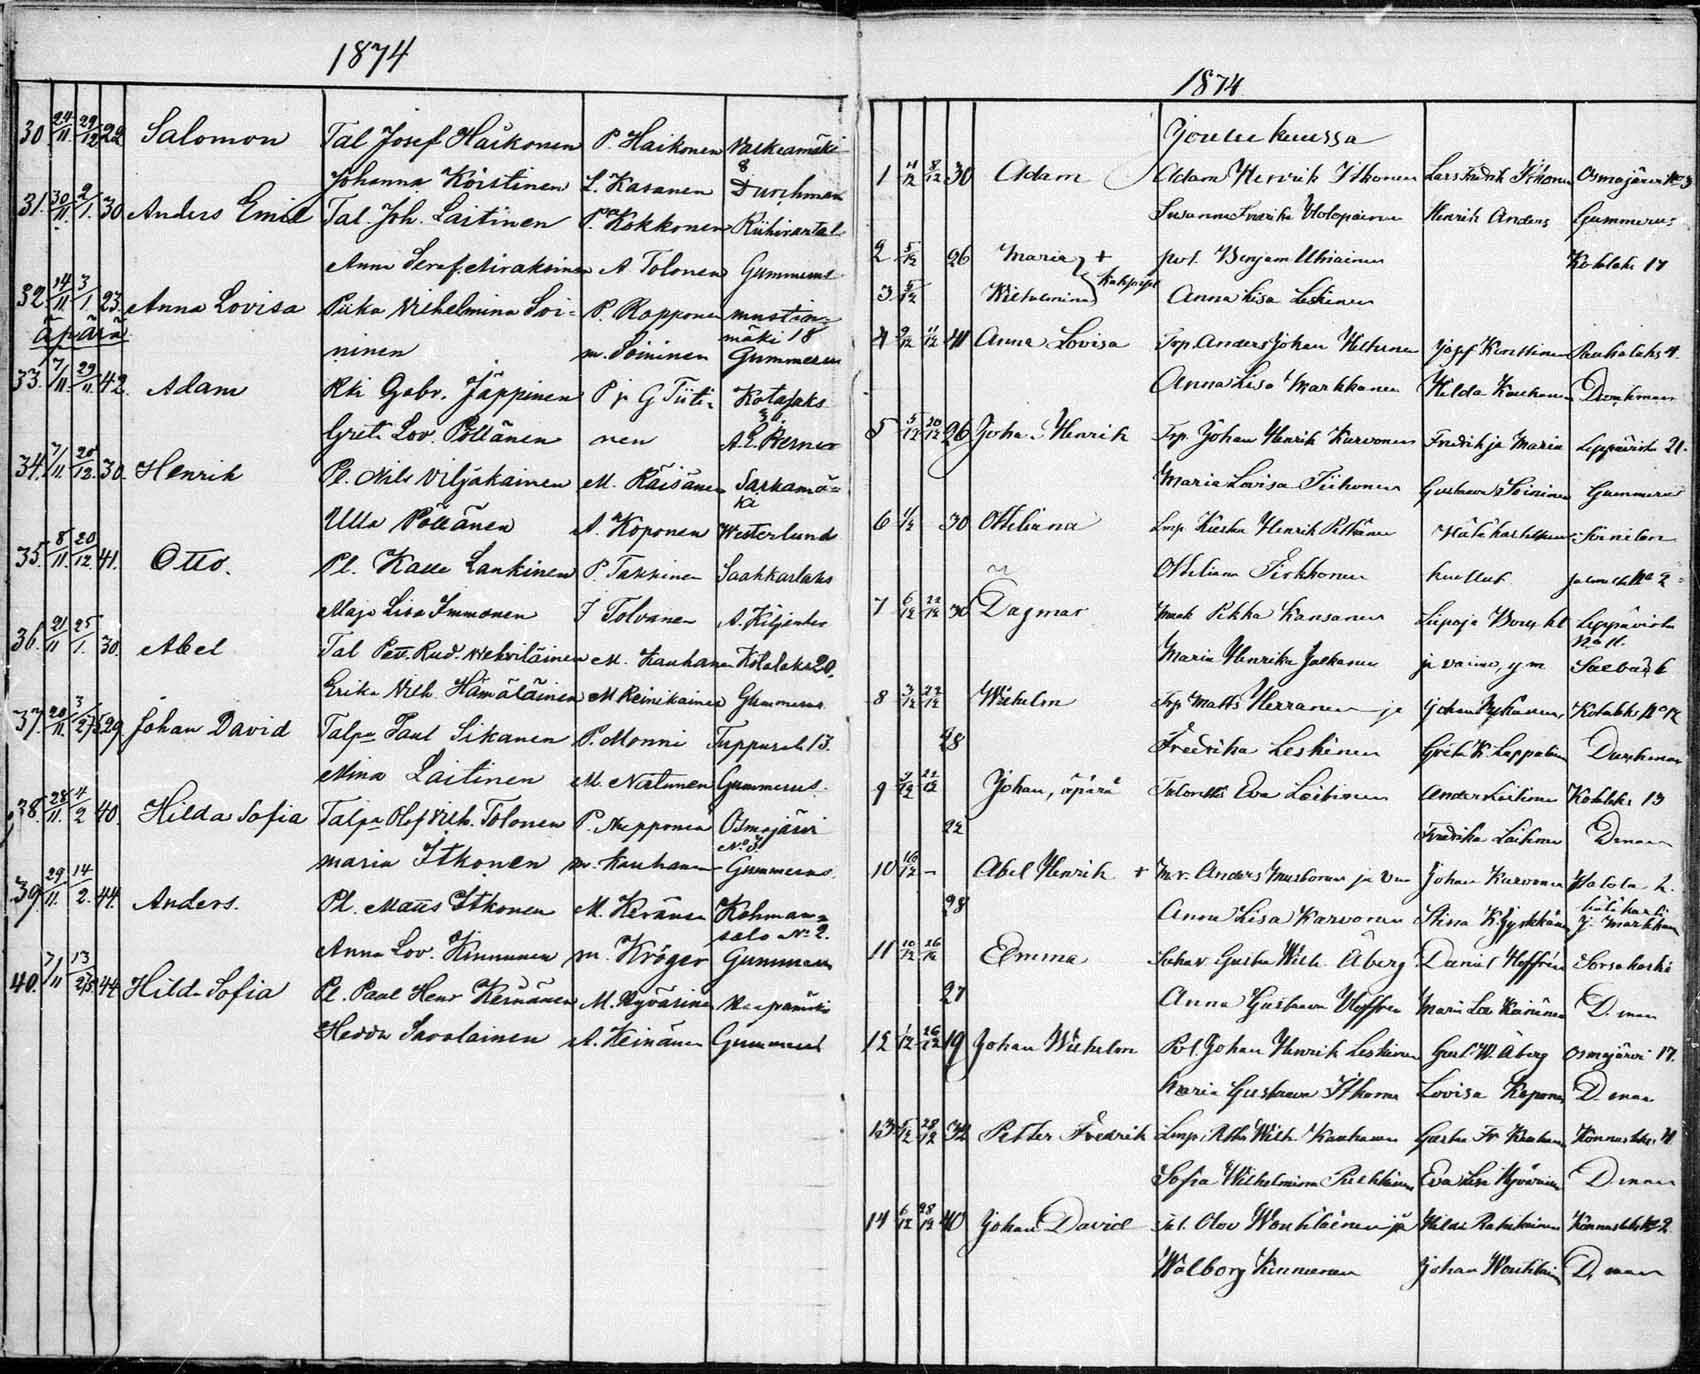 1874
30 24/11. 29/12 22 Salomon Tal Josef Haikonen P. Haikonen Valkeamäki 8
Johanna Koistinen L. Kasanen Durchman
31. 30/11. 2/1. 30 Anders Emil Tal. Joh. Laitinen P. Kokkonen Riihirantal
Anna Seraf. A. Tolonen Gummerus
32. 14/11 3/1. 23. Anna Lovisa Piika Vilhelmina Soi= P. Rapponen mustin=
äpärä mäki 18
ninen m. Soininen Gummerus
33. 7/11 29/11 42. Adam Rki Gabr. Jäppinen P ja G Tiiti= Kotalaks
Greta Lov. Pöllänen nen A. E. Perner
34. 7/11 20/12. 30. Henrik Pl. Nils Viljakainen M. Räisänen Sarkamä=
ki
Ulla Pöllänen A. Koponen Westerlund
35. 8/11. 20/12. 41. Otto. Pl. Kalle Lankinen P. Takkinen Saahkarlaks
Maja Lisa Immonen J Tolvanen A. Kiljander
36. 21/11 25/1. 30. Abel Tal Pett. Rud. Vehviläinen M. Kauhanen Kotalaks 20.
Erika Vilh. Hämäläinen M Reinikainen Gummerus
37. 20/11. 3/275 29 Johan David Talpa Paul Sikanen P. Monni Tuppural. 13.
Mina Laitinen M. Natunen Gummerus.
38. 28/11. 4/2 40. Hilda Sofia Talpa Olof Vilh. Tolonen P. Nepponen Osmajärvi
No 3.
maria Itkonen m. Kauhanen Gummerus
39. 29/11. 14/2. 44. Anders. Pl. Matts Itkonen M. Keränen Kohman=
salo No 2.
Anna Lov. Kinnunen m. Kröger Gummerus
40. 7/11 13/275 44 Hilda Sofia Pl. Paul Henr Keinänen M. Hyvärinen
Hedda Savolainen A. Keinänen Gummerus
1874
Joulukuussa
1 4/12 8/12 30 Adam Adam Henrik Itkonen Lars Fredrik Itkonen Osmajärvi No 3
Susanna Fredrika Holopainen Henrik Anders Gummerus
2 5/12 26 Maria + pol. Benjam Uhiainen Kotalaks 17
3 5/12 Wilhelmina Anna Lisa Leskinen
4 9/12 11/12 41 Anna Lovisa Trp. Anders Johan Josef Konttinen
Anna Lisa Markkanen Hilda Kauhanen Durchman
5 5/12 20/12 26 Johan Henrik Trp. Johan Henrik Karvonen Fredrik ja Maria Leppävirta 21.
Maria Lovisa Tiihonen Gustava Soininen Gummerus
6 11/12 30 Othiliana Lmp. Kusta Henrik Soinilan
Othiliana Pirkkonen No 2
7 6/12 22/12 30 Dagmar Pekka Kansanen Leppävirta
No 11.
Maria Henrika Jalkanen ja vaimo, ym
8 3/12 22/12 Wilhelm Trp Matts Herranen ja Johan Nykänen, Kotalaks No 12
28 Fredrika Leskinen Greta K. Lappalainen Durchman
9 9/12 22/12 Johan, äpärä Eva Laitinen Anders Laitinen Kotalaks 13
22 Fredrika Laitinen D:man
10 16/12 - Abel Henrik + Anders Mustonen ja Johan Karvonen Watala 2.
28 Anna Lisa Karvonen Stina K. J. Markkanen
11 10/12 26/12 Emma Gustaf Wilh. Åberg Daniel Hoffrén Sorsakoski
27 Anna Gustava Hoffren Maria Lov Kainänen D. man
12 1/12 26/12 19 Johan Wilhelm Pol. Johan Henrik Leskinen Gust. W. Åberg Osmajärvi 17.
Maria Gustava Itkonen Lovisa Koponen D. man
13 5/12 28/12 32 Petter Fredrik Lmp: Wilh. Kauhanen Gusta Fr Kauhanen Konnuslaks 4
Sofia Wilhelmina Eva Lisa Hyvärinen D man
14 6/12 28/12 40 Johan David Tal. Olov Woutilainen ja Hilda Konnuslaks No 2
Walborg Kinnunen Johan Woutilainen D. man